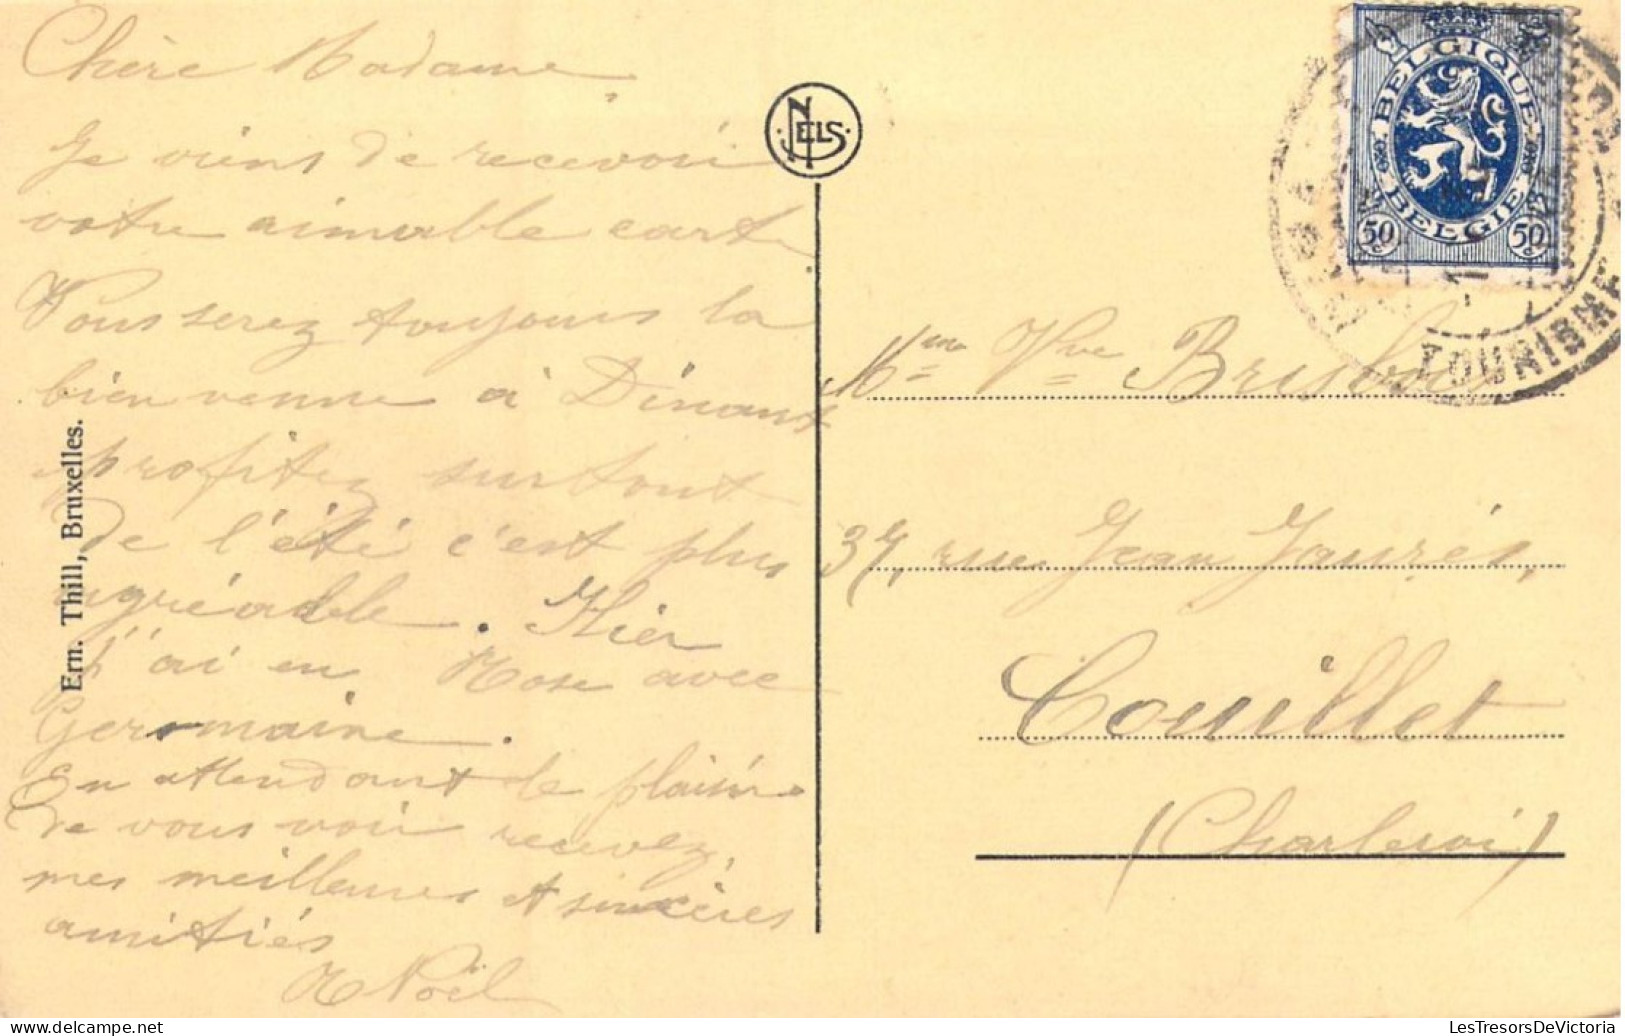 Chère Madame,
Je viens de recevoir
votre aimable carte
Vous serez toujours la
bien venue à Dinant
profitez surtout
de l'été c'est plus
agréable. Hier
j'ai eu Rose avec
Germaine.
En attendant le plaisir
de vous voir recevez,
mes meilleures et sincères
amitiés
Noël
Ern. Thill, Bruxelles.
NELS
BELGIQUE
BELGIE
50c 50c
TOURISME
Mme Vve Brisbois
37, rue Jean Jaurés,
Couillet
(Charleroi)
LesTresorsDeVictoria.delcampe.net